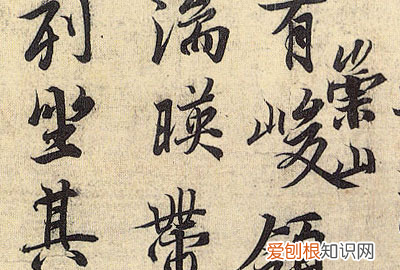 有崇山峻領
湍暎帶
列坐其
爱刨根知识网